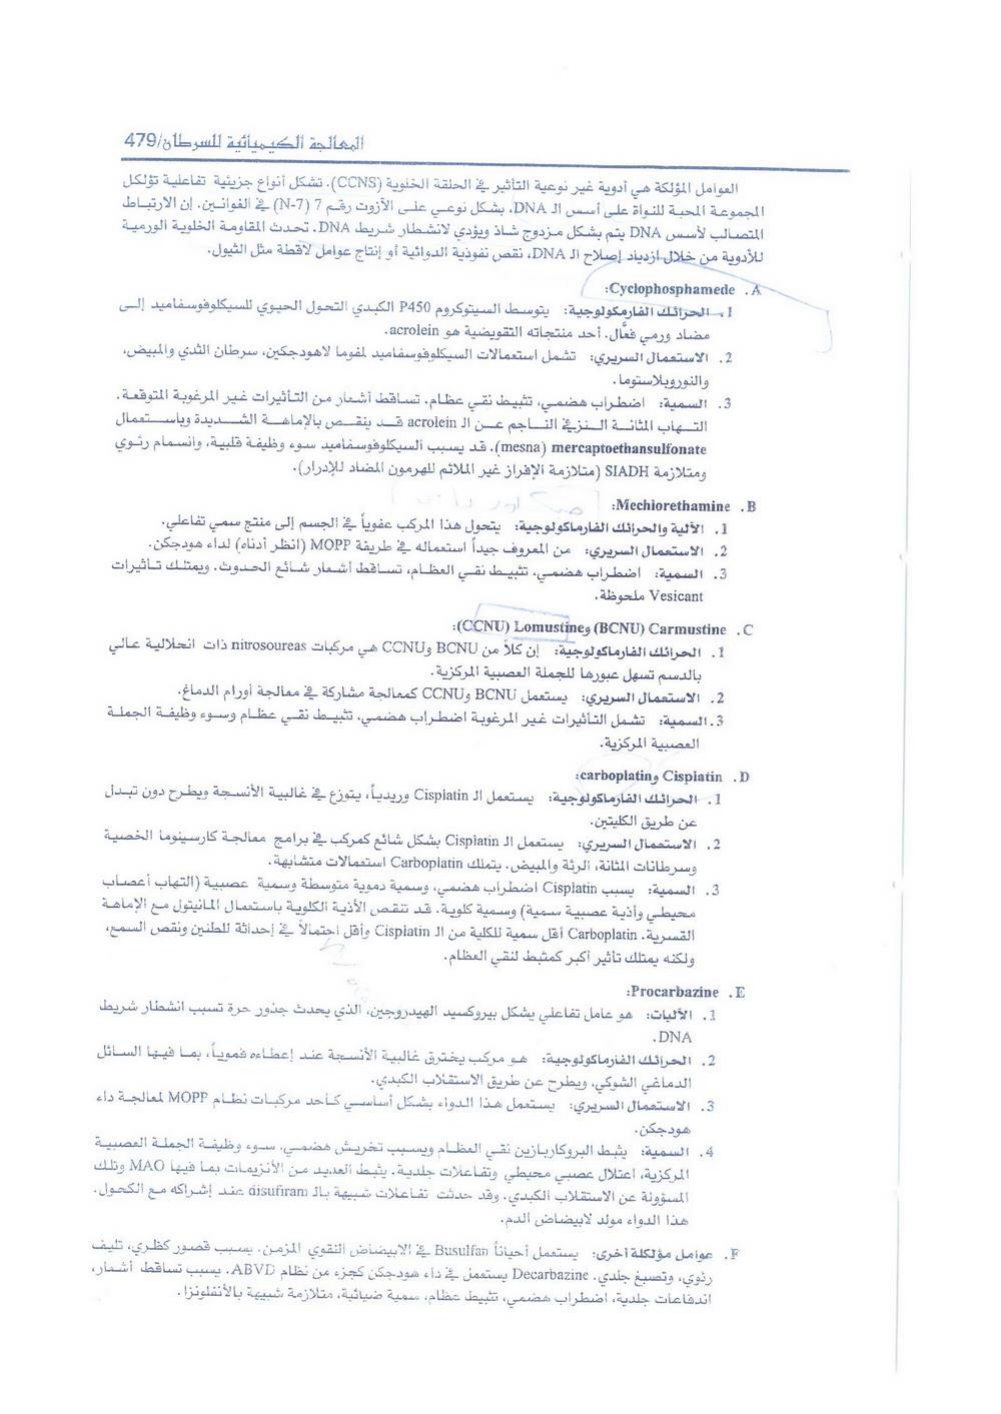 المعالجة الكيميائية للسرطان/479
العوامل المؤلكة هي أدوية غير نوعية التأثير في الحلقة الخلوية (CCNS). تشكل أنواع جزيئية تفاعلية تؤلكل
المجموعة المحبة للنواة على أسس الـ DNA، بشكل نوعي على الآزوت رقم 7 (N-7) في الغوانين. إن الارتباط
المتصالب لأسس DNA يتم بشكل مزدوج شاذ ويؤدي لانشطار شريط DNA. تحدث المقاومة الخلوية الورمية
للأدوية من خلال ازدياد إصلاح الـ DNA، نقص نفوذية الدوائية أو إنتاج عوامل لاقطة مثل الثيول.
A. Cyclophosphamede:
1. الحرائك الفارمكولوجية: يتوسط السيتوكروم P450 الكبدي التحول الحيوي للسيكلوفوسفاميد إلى
مضاد ورمي فعَّال. أحد منتجاته التقويضية هو acrolein.
2. الاستعمال السريري: تشمل استعمالات السيكلوفوسفاميد لمفوما لاهودجكين، سرطان الثدي والمبيض،
والنوروبلاستوما.
3. السمية: اضطراب هضمي، تثبيط نقي عظام. تساقط أشعار من التأثيرات غير المرغوبة المتوقعة.
التهاب المثانة النزفي الناجم عن الـ acrolein قد ينقص بالإماهة الشديدة وباستعمال
mercaptoethansulfonate (mesna). قد يسبب السيكلوفوسفاميد سوء وظيفة قلبية، وانسمام رئوي
ومتلازمة SIADH (متلازمة الإفراز غير الملائم للهرمون المضاد للإدرار).
B. Mechiorethamine:
1. الآلية والحرائك الفارماكولوجية: يتحول هذا المركب عفوياً في الجسم إلى منتج سمي تفاعلي.
2. الاستعمال السريري: من المعروف جيداً استعماله في طريقة MOPP (انظر أدناه) لداء هودجكن.
3. السمية: اضطراب هضمي. تثبيط نقي العظام، تساقط أشعار شائع الحدوث. ويمتلك تأثيرات
Vesicant ملحوظة.
C. Carmustine (BCNU) وLomustine (CCNU):
1. الحرائك الفارماكولوجية: إن كلاً من BCNU وCCNU هي مركبات nitrosoureas ذات انحلالية عالي
بالدسم تسهل عبورها للجملة العصبية المركزية.
2. الاستعمال السريري: يستعمل BCNU وCCNU كمعالجة مشاركة في معالجة أورام الدماغ.
3. السمية: تشمل التأثيرات غير المرغوبة اضطراب هضمي، تثبيط نقي عظام وسوء وظيفة الجملة
العصبية المركزية.
D. Cisplatin وcarboplatin:
1. الحرائك الفارماكولوجية: يستعمل الـ Cisplatin وريدياً، يتوزع في غالبية الأنسجة ويطرح دون تبدل
عن طريق الكليتين.
2. الاستعمال السريري: يستعمل الـ Cisplatin بشكل شائع كمركب في برامج معالجة كارسينوما الخصية
وسرطانات المثانة، الرئة والمبيض. يتملك Carboplatin استعمالات متشابهة.
3. السمية: يسبب Cisplatin اضطراب هضمي، وسمية دموية متوسطة وسمية عصبية (التهاب أعصاب
محيطي وأذية عصبية سمية) وسمية كلوية. قد تنقص الأذية الكلوية باستعمال المانيتول مع الإماهة
القسرية. Carboplatin أقل سمية للكلية من الـ Cisplatin وأقل احتمالاً في إحداثة للطنين ونقص السمع،
ولكنه يمتلك تأثير أكبر كمثبط لنقي العظام.
E. Procarbazine:
1. الآليات: هو عامل تفاعلي يشكل بيروكسيد الهيدروجين، الذي يحدث جذور حرة تسبب انشطار شريط
DNA.
2. الحرائك الفارماكولوجية: هو مركب يخترق غالبية الأنسجة عند إعطاءه فموياً، بما فيها السائل
الدماغي الشوكي، ويطرح عن طريق الاستقلاب الكبدي.
3. الاستعمال السريري: يستعمل هذا الدواء بشكل أساسي كأحد مركبات نظام MOPP لمعالجة داء
هودجكن.
4. السمية: يثبط البروكاربازين نقي العظام ويسبب تخريش هضمي، سوء وظيفة الجملة العصبية
المركزية، اعتلال عصبي محيطي وتفاعلات جلدية. يثبط العديد من الأنزيمات بما فيها MAO وتلك
المسؤولة عن الاستقلاب الكبدي. وقد حدثت تفاعلات شبيهة بالـ disufiram عند إشراكه مع الكحول.
هذا الدواء مولد لابيضاض الدم.
F. عوامل مؤلكلة أخرى: يستعمل أحياناً Busulfan في الابيضاض النقوي المزمن. يسبب قصور كظري، تليف
رئوي، وتصبغ جلدي. Decarbazine يستعمل في داء هودجكن كجزء من نظام ABVD. يسبب تساقط أشعار،
اندفاعات جلدية، اضطراب هضمي، تثبيط عظام، سمية ضيائية، متلازمة شبيهة بالأنفلونزا.